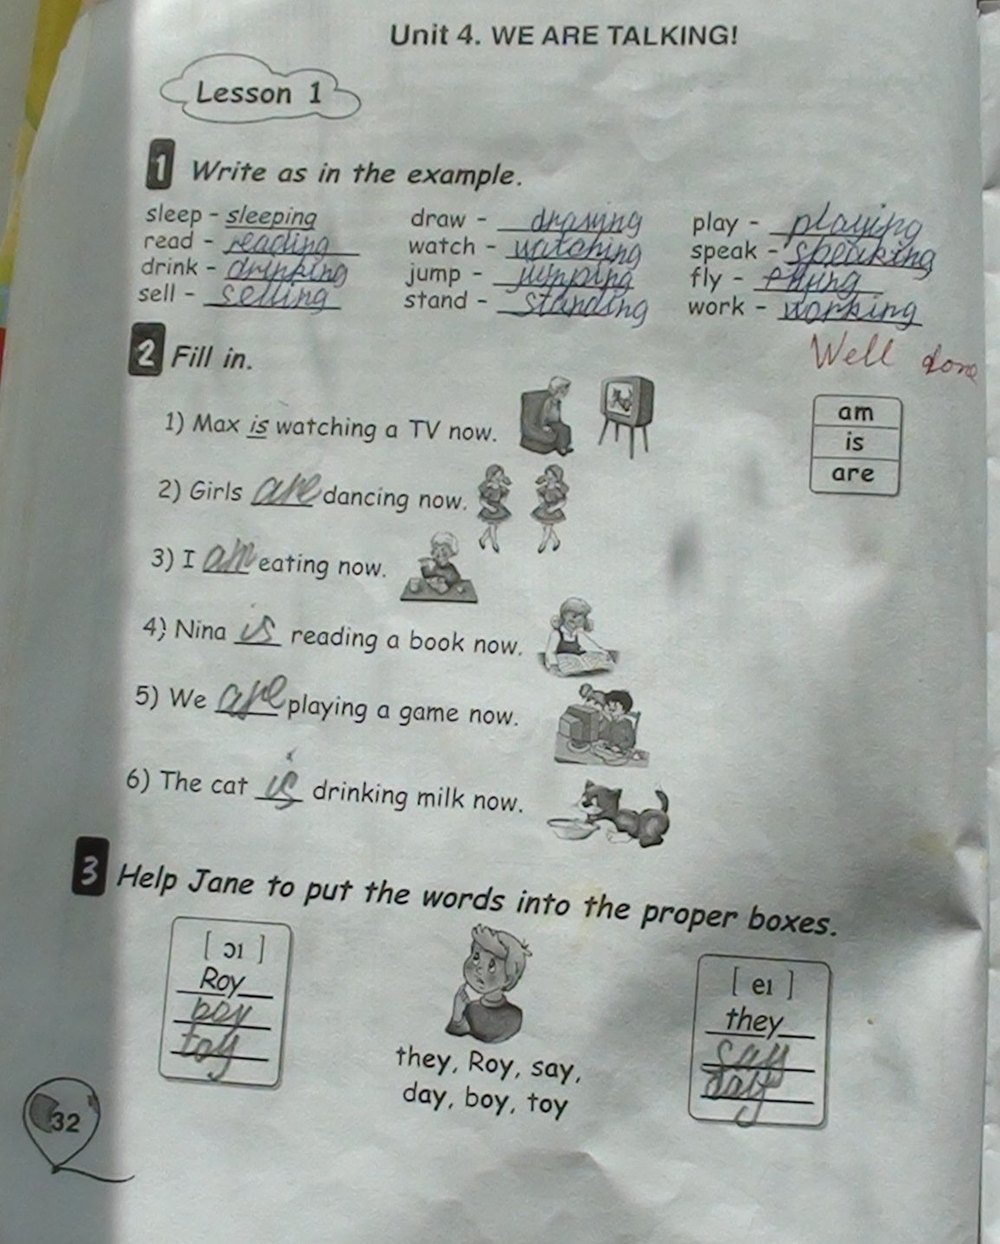 Unit 4. WE ARE TALKING!
Lesson 1
1 Write as in the example.
sleep - sleeping draw - drawing play - playing
read - reading watch - watching speak - speaking
drink - drinking jump - jumping fly - flying
sell - selling stand - standing work - working
Well done
2 Fill in.
1) Max is watching a TV now.
am
is
are
2) Girls are dancing now.
3) I am eating now.
4) Nina is reading a book now.
5) We are playing a game now.
6) The cat is drinking milk now.
3 Help Jane to put the words into the proper boxes.
[ ɔı ]
Roy
boy
toy
they, Roy, say,
day, boy, toy
[ eı ]
they
say
day
32